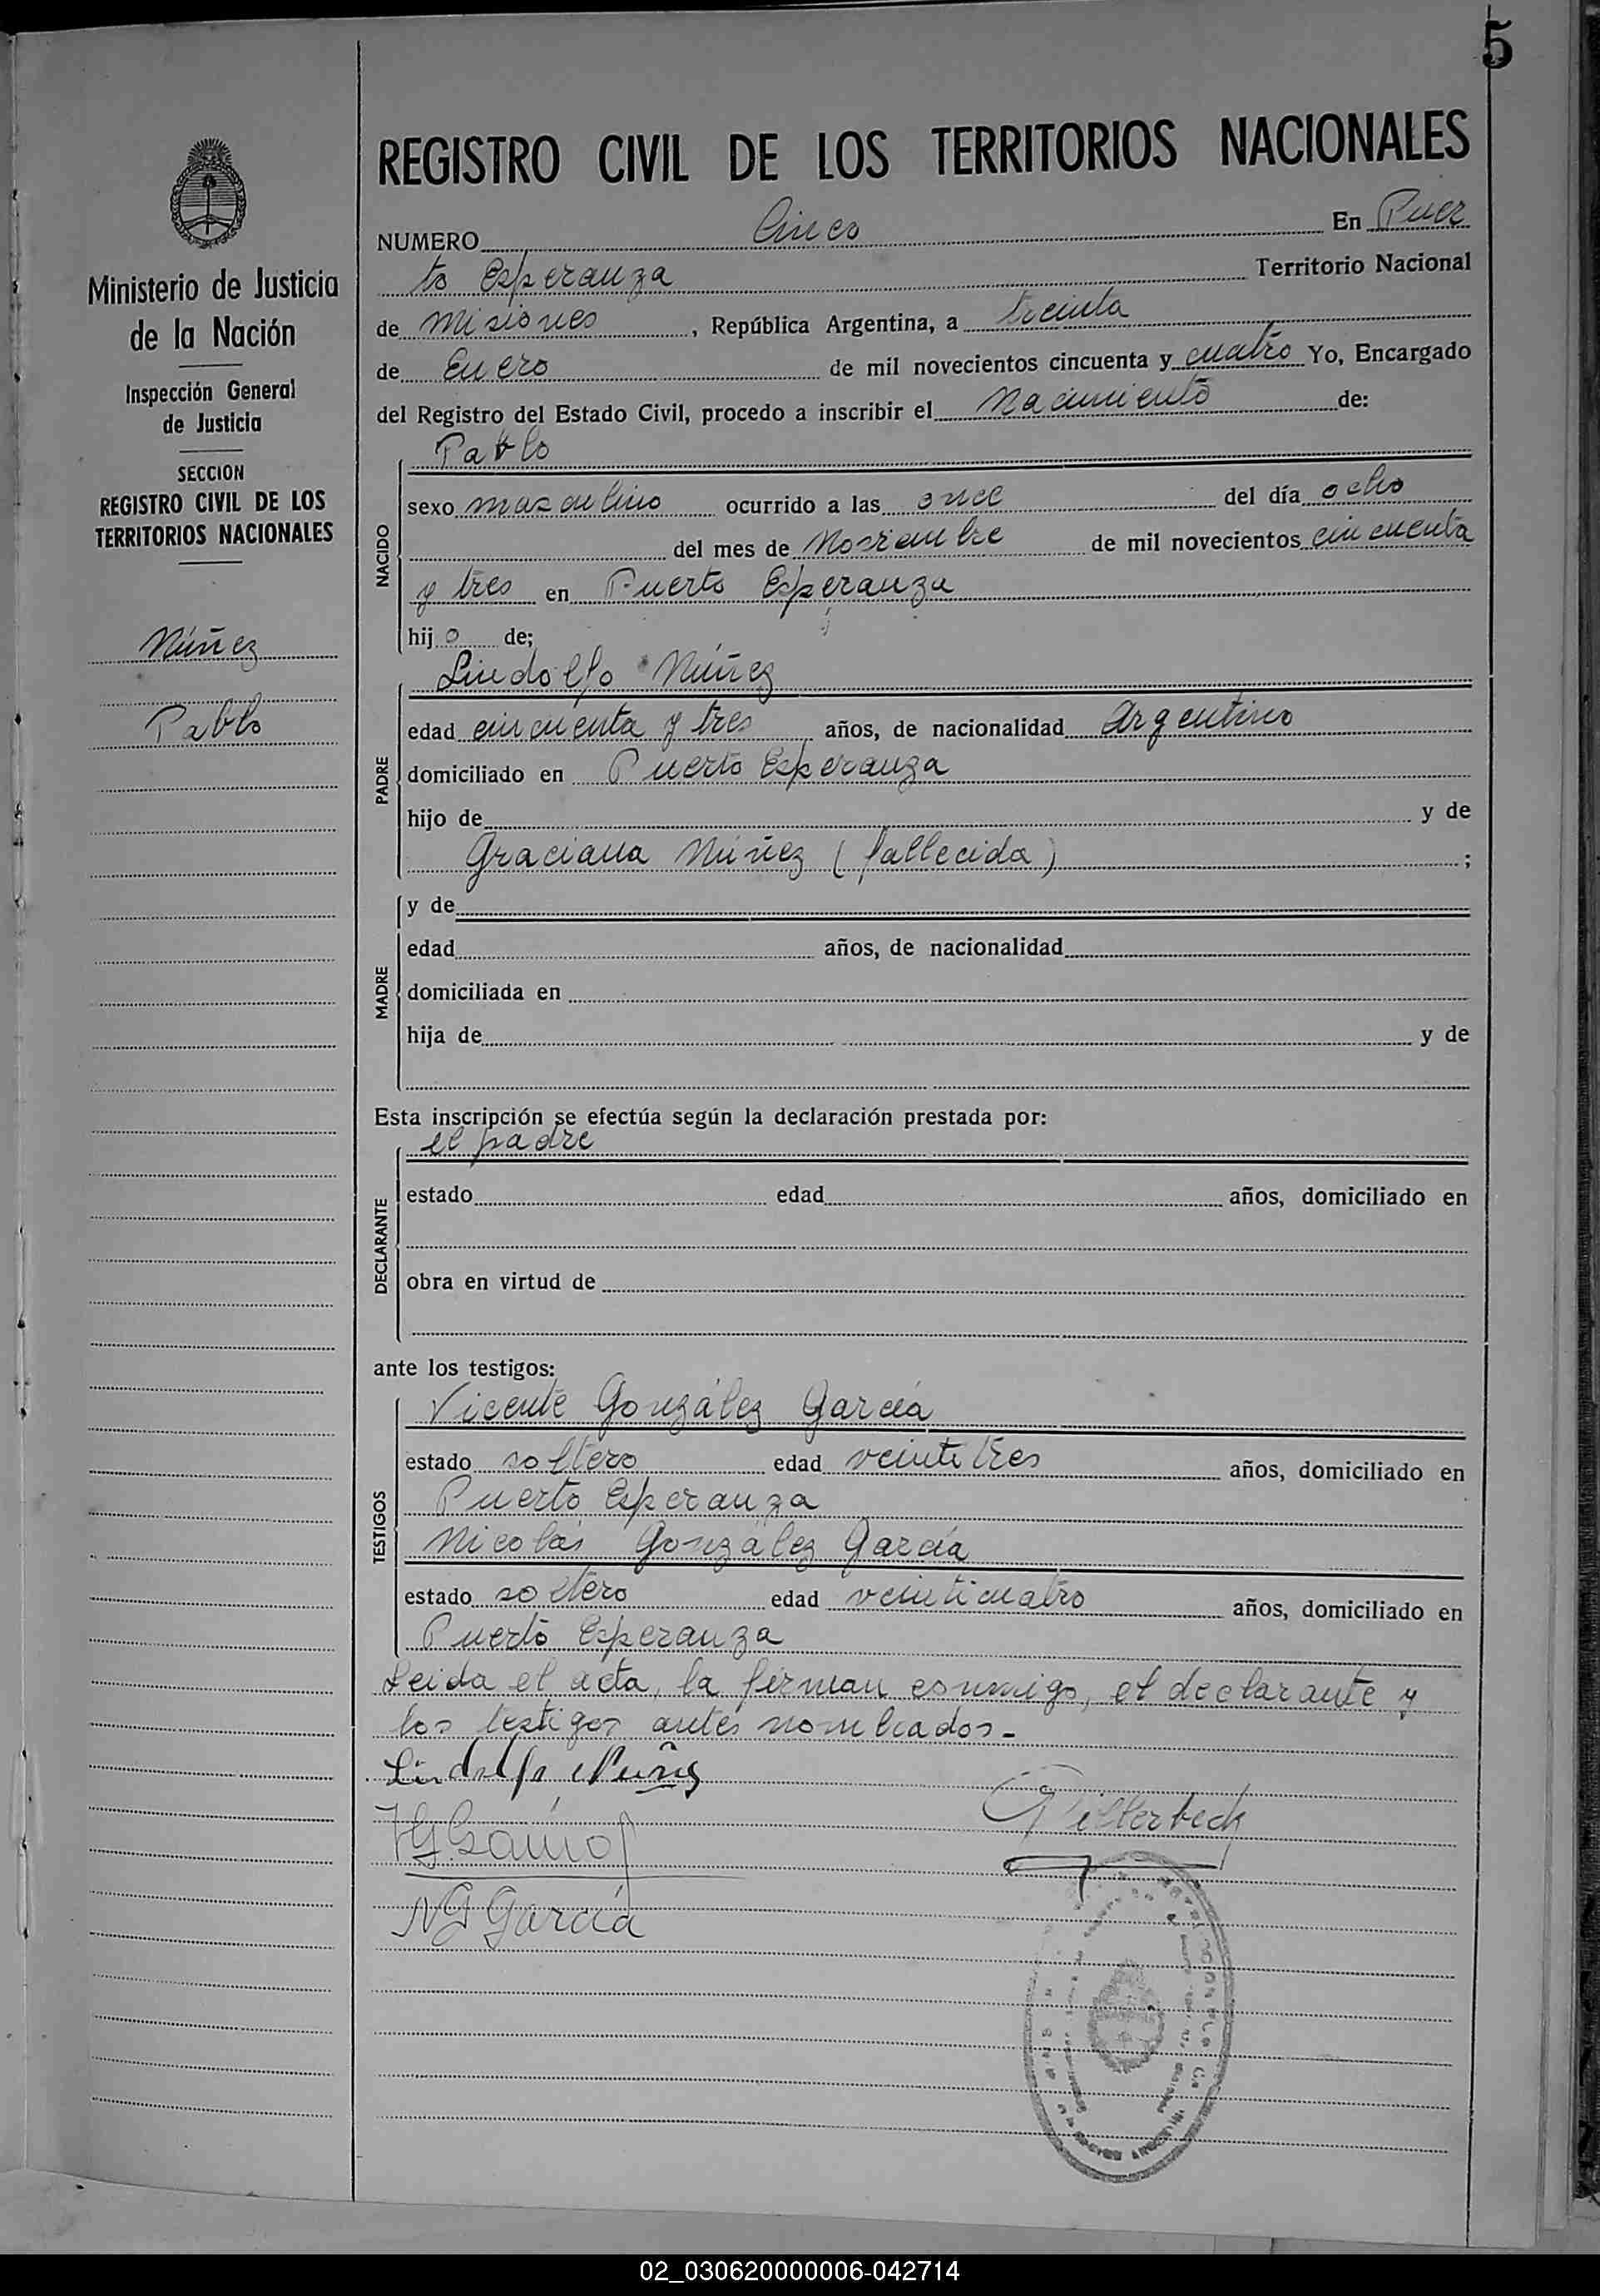 5
Ministerio de Justicia
de la Nación
Inspección General
de Justicia
SECCION
REGISTRO CIVIL DE LOS
TERRITORIOS NACIONALES
Núñez
Pablo
REGISTRO CIVIL DE LOS TERRITORIOS NACIONALES
NUMERO Cinco En Puer
to Esperanza Territorio Nacional
de Misiones, República Argentina, a treinta
de Enero de mil novecientos cincuenta y cuatro Yo, Encargado
del Registro del Estado Civil, procedo a inscribir el Nacimiento de:
NACIDO
Pablo
sexo masculino ocurrido a las once del día ocho
del mes de Noviembre de mil novecientos cincuenta
y tres en Puerto Esperanza
hijo de;
PADRE
Lindolfo Núñez
edad cincuenta y tres años, de nacionalidad Argentino
domiciliado en Puerto Esperanza
hijo de y de
Graciana Núñez (fallecida) ;
MADRE
y de
edad años, de nacionalidad
domiciliada en
hija de y de
Esta inscripción se efectúa según la declaración prestada por:
DECLARANTE
el padre
estado edad años, domiciliado en
obra en virtud de
ante los testigos:
TESTIGOS
Vicente González García
estado soltero edad veintitres años, domiciliado en
Puerto Esperanza
Nicolás González García
estado soltero edad veinticuatro años, domiciliado en
Puerto Esperanza
Leida el acta, la firman conmigo, el declarante y
los testigos antes nombrados.-
Lindolfo Nuñes
N G García
02_030620000006-042714